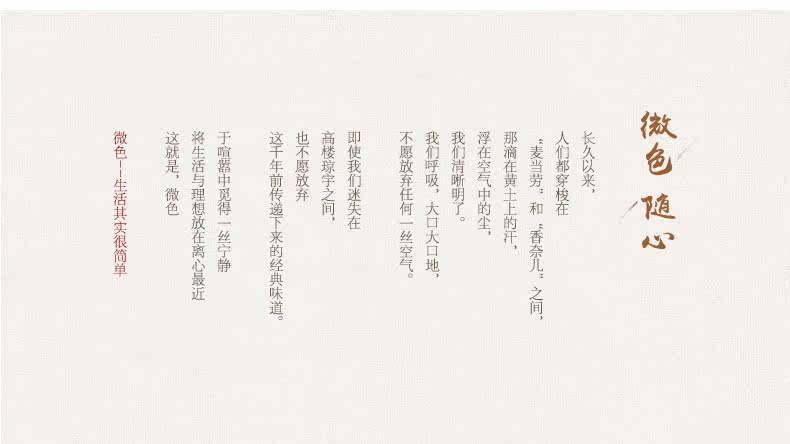 微色 随心
长久以来，
人们都穿梭在
“麦当劳”和“香奈儿”之间，
那滴在黄土上的汗，
浮在空气中的尘，
我们清晰明了。
我们呼吸，大口大口地，
不愿放弃任何一丝空气。
即使我们迷失在
高楼琼宇之间，
也不愿放弃
这千年前传递下来的经典味道。
于喧嚣中觅得一丝宁静
将生活与理想放在离心最近
这就是，微色
微色--生活其实很简单